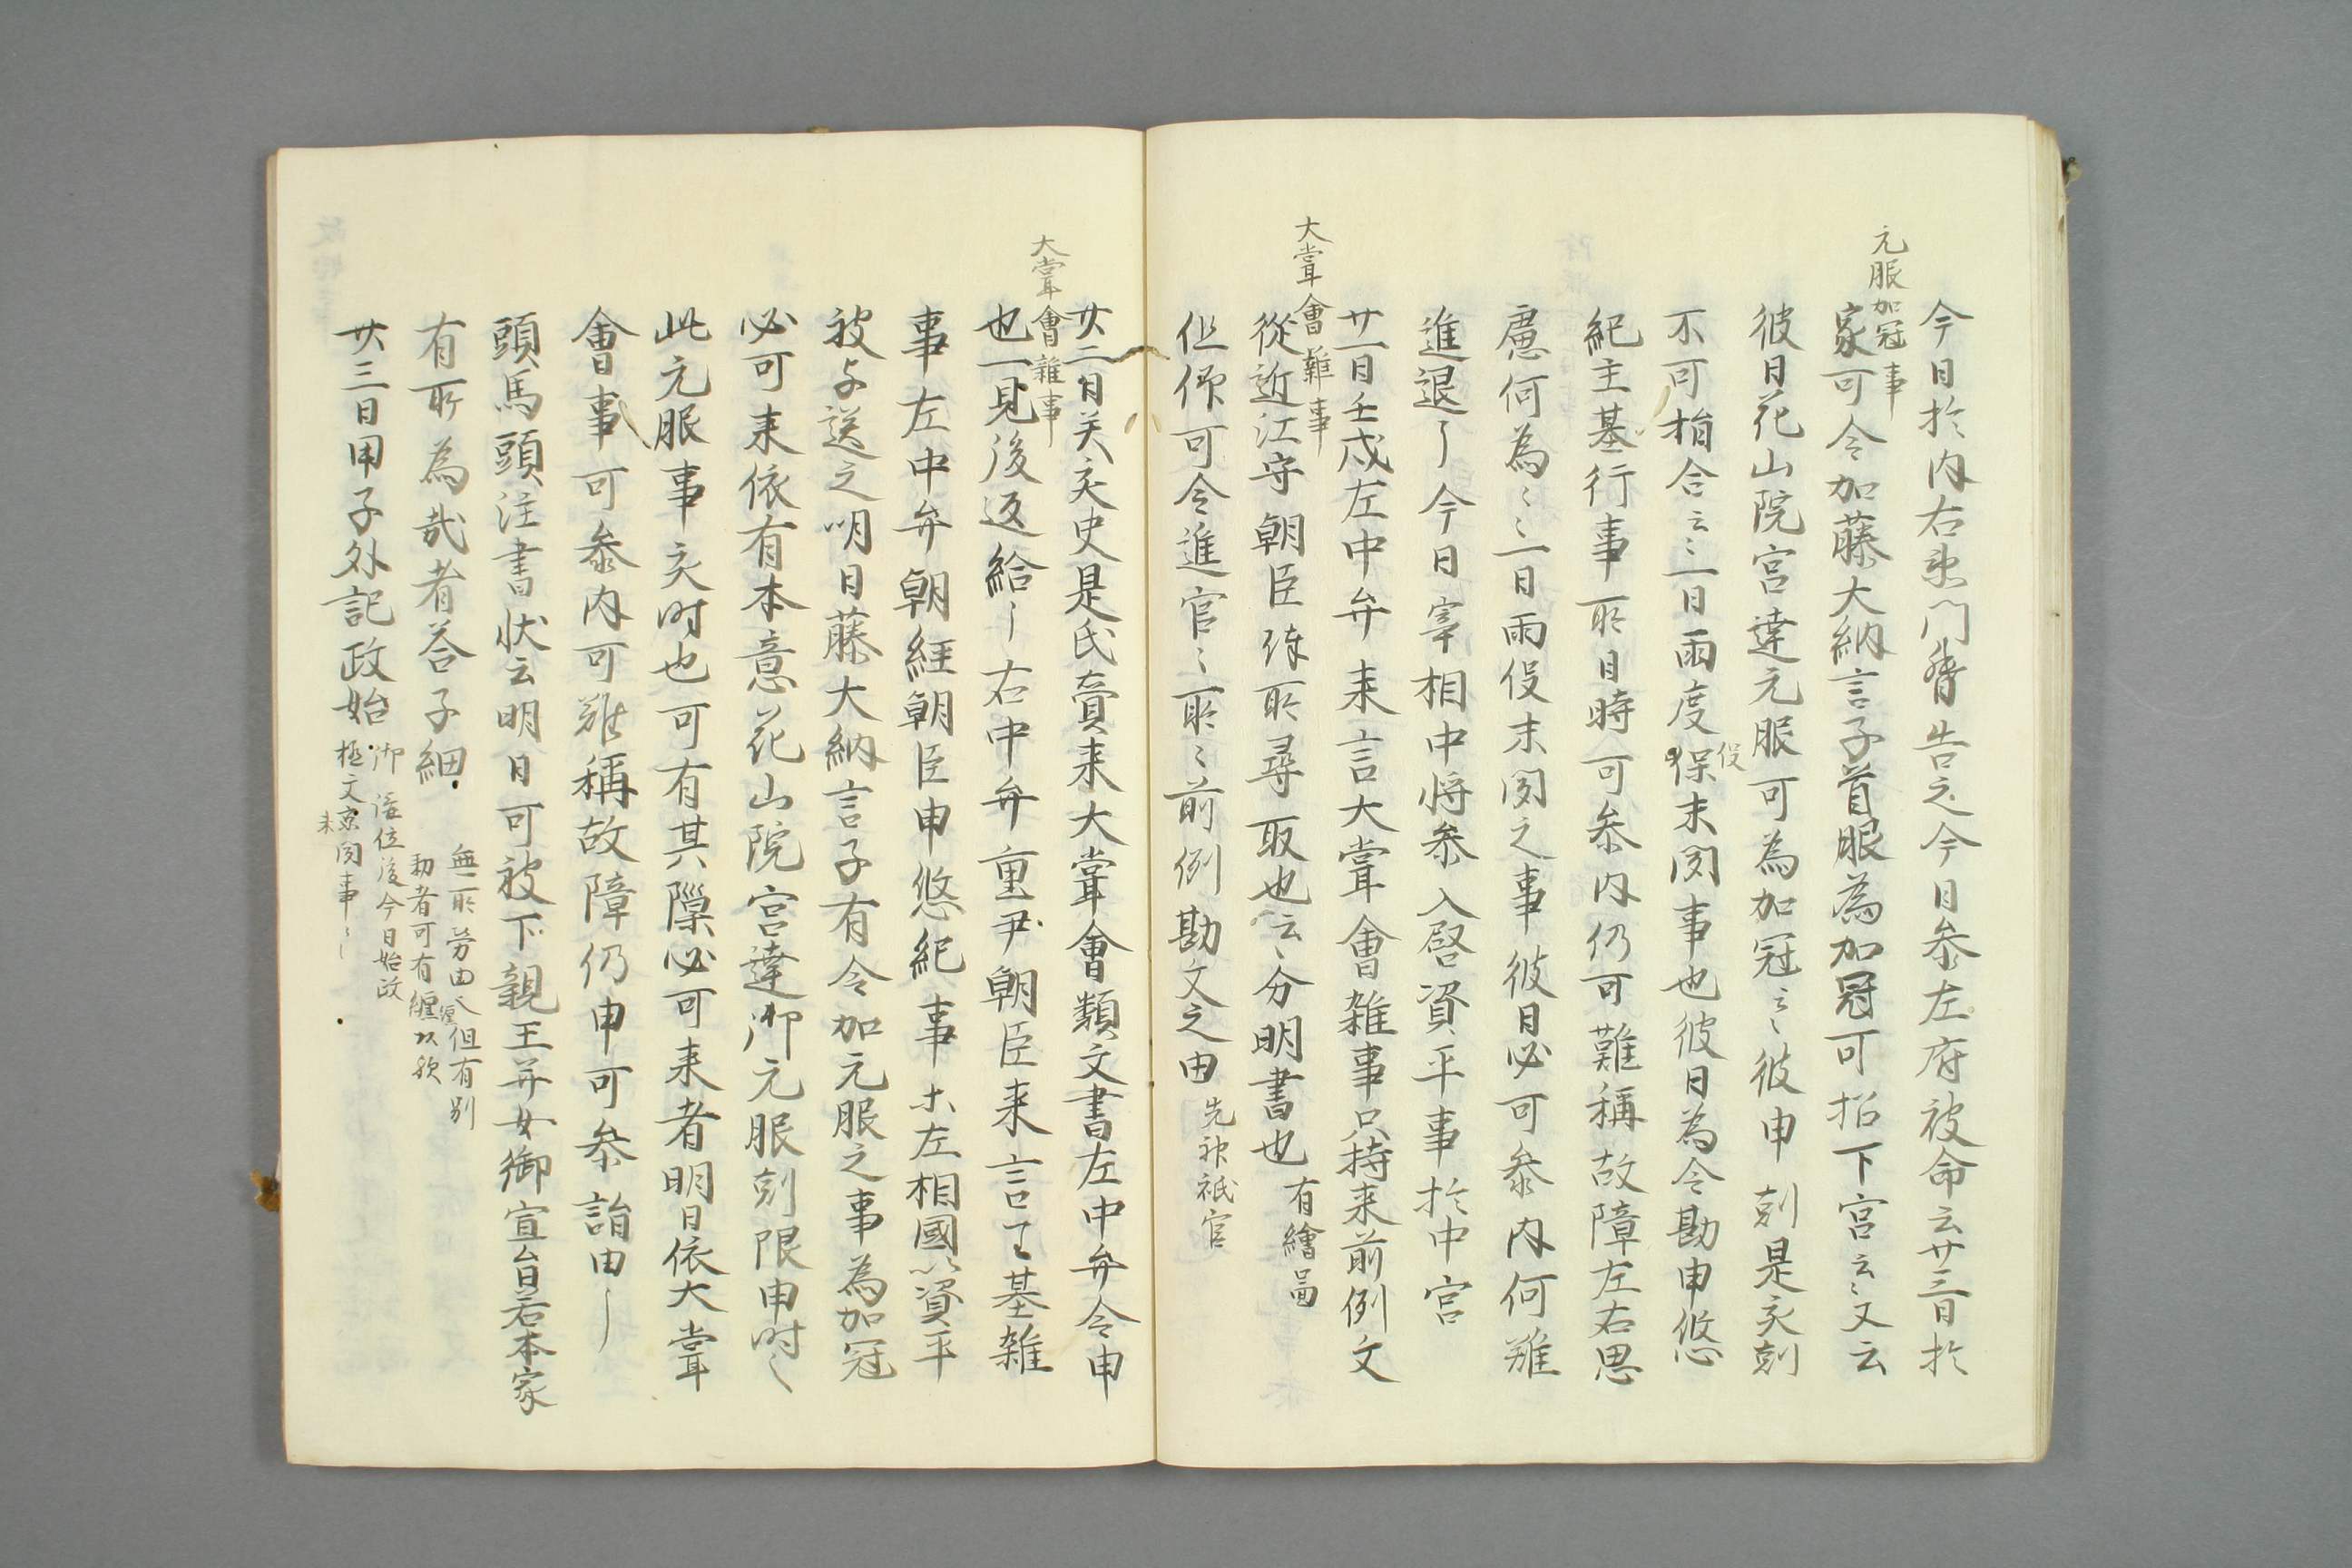 元服加冠事
今日於内右衛門督告之今日参左府被命云廿三日於
家可令加藤大納言子首服為加冠可招下官云〻又云
彼日花山院宮達元服可為加冠云〻彼申剋是亥剋
不可指合云〻一日両度保末聞事也彼日為令勘申悠
役
紀主基行事所日時可参内仍可難稱故障左右思
慮何為〻〻一日両役未聞之事彼日必可参内何難
進退了今日宰相中将参入啓資平事於中宮
大甞會雜事
廿一日壬戌左中弁来言大甞會雑事只持来前例文
從近江守朝臣許所尋取也云〻分明書也有繪啚
但仰可令進官〻所〻前例勘文之由先神祇官
大甞會雜事
廿二日癸亥史是氏賷来大甞會類文書左中弁令申
也一見後返給〻右中弁重尹朝臣来言主基雜
事左中弁朝經朝臣申悠紀事木左相國以資平
被与送之明日藤大納言子有令加元服之事為加冠
必可来依有本意花山院宮達御元服剋限申時〻
此元服事亥时也可有其隟必可来者明日依大甞
會事可参内可難稱故障仍申可参詣由〻
頭馬頭注書状云明日可被下親王并女御宣旨若本家
有所為哉者荅子細無所労由〻但有別
勅者可有纒頭欤
廿三日甲子外記政始御即位後今日始政
極文未聞事〻